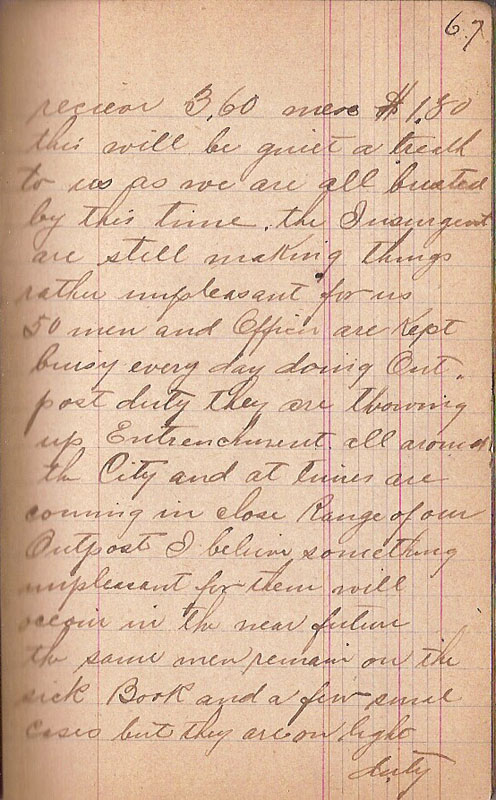 67
recieov 3,60 mex $1,80
this will be quiet a treatt
to us as we are all busted
by this time. the Insurgent
are still making things
rather unpleasant for us
50 men and Officer are Kept
buisy every day doing Out.
post duty they are thowing
up Entrenchment all around
the City and at times are
coming in close Range of our
Outpost I believe something
unpleasant for them will
occur in the near future
the same men remain on the
sick Book and a few small
cases but they are on light
duty